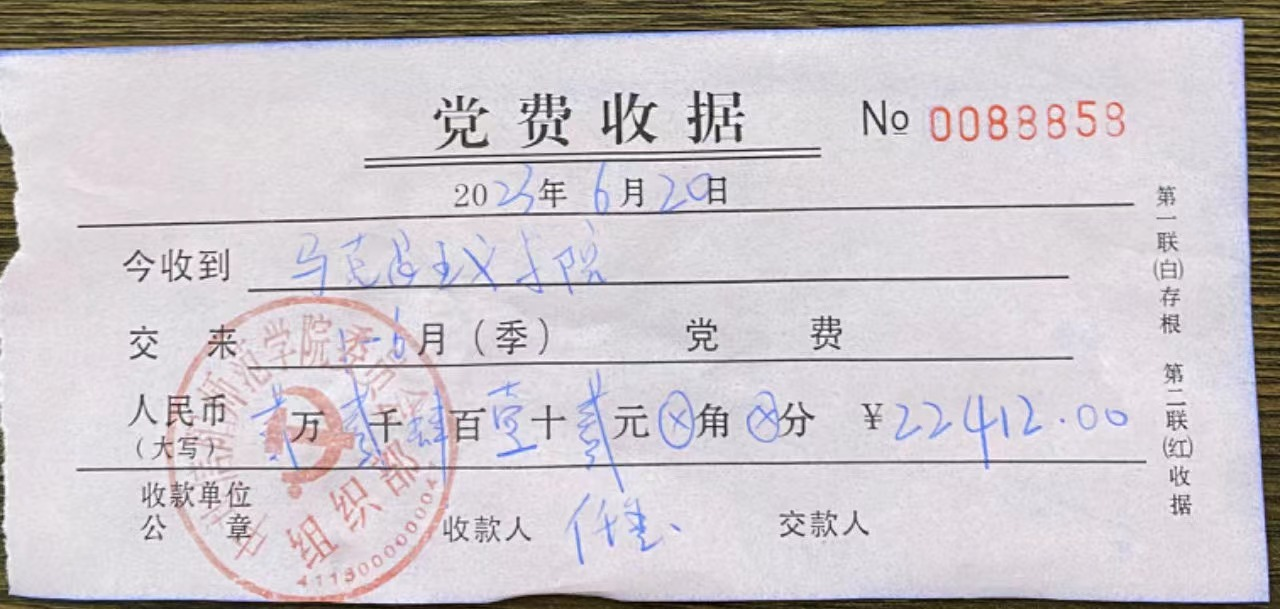 党费收据 № 0088858
2023年6月20日
今收到 马克思主义学院
交来 1-6月(季) 党费
人民币(大写) 贰万贰千肆百壹十贰元⊗角⊗分 ¥22412.00
收款单位公章 收款人 交款人
第一联(白)存根 第二联(红)收据
师范学院委员会
组织部